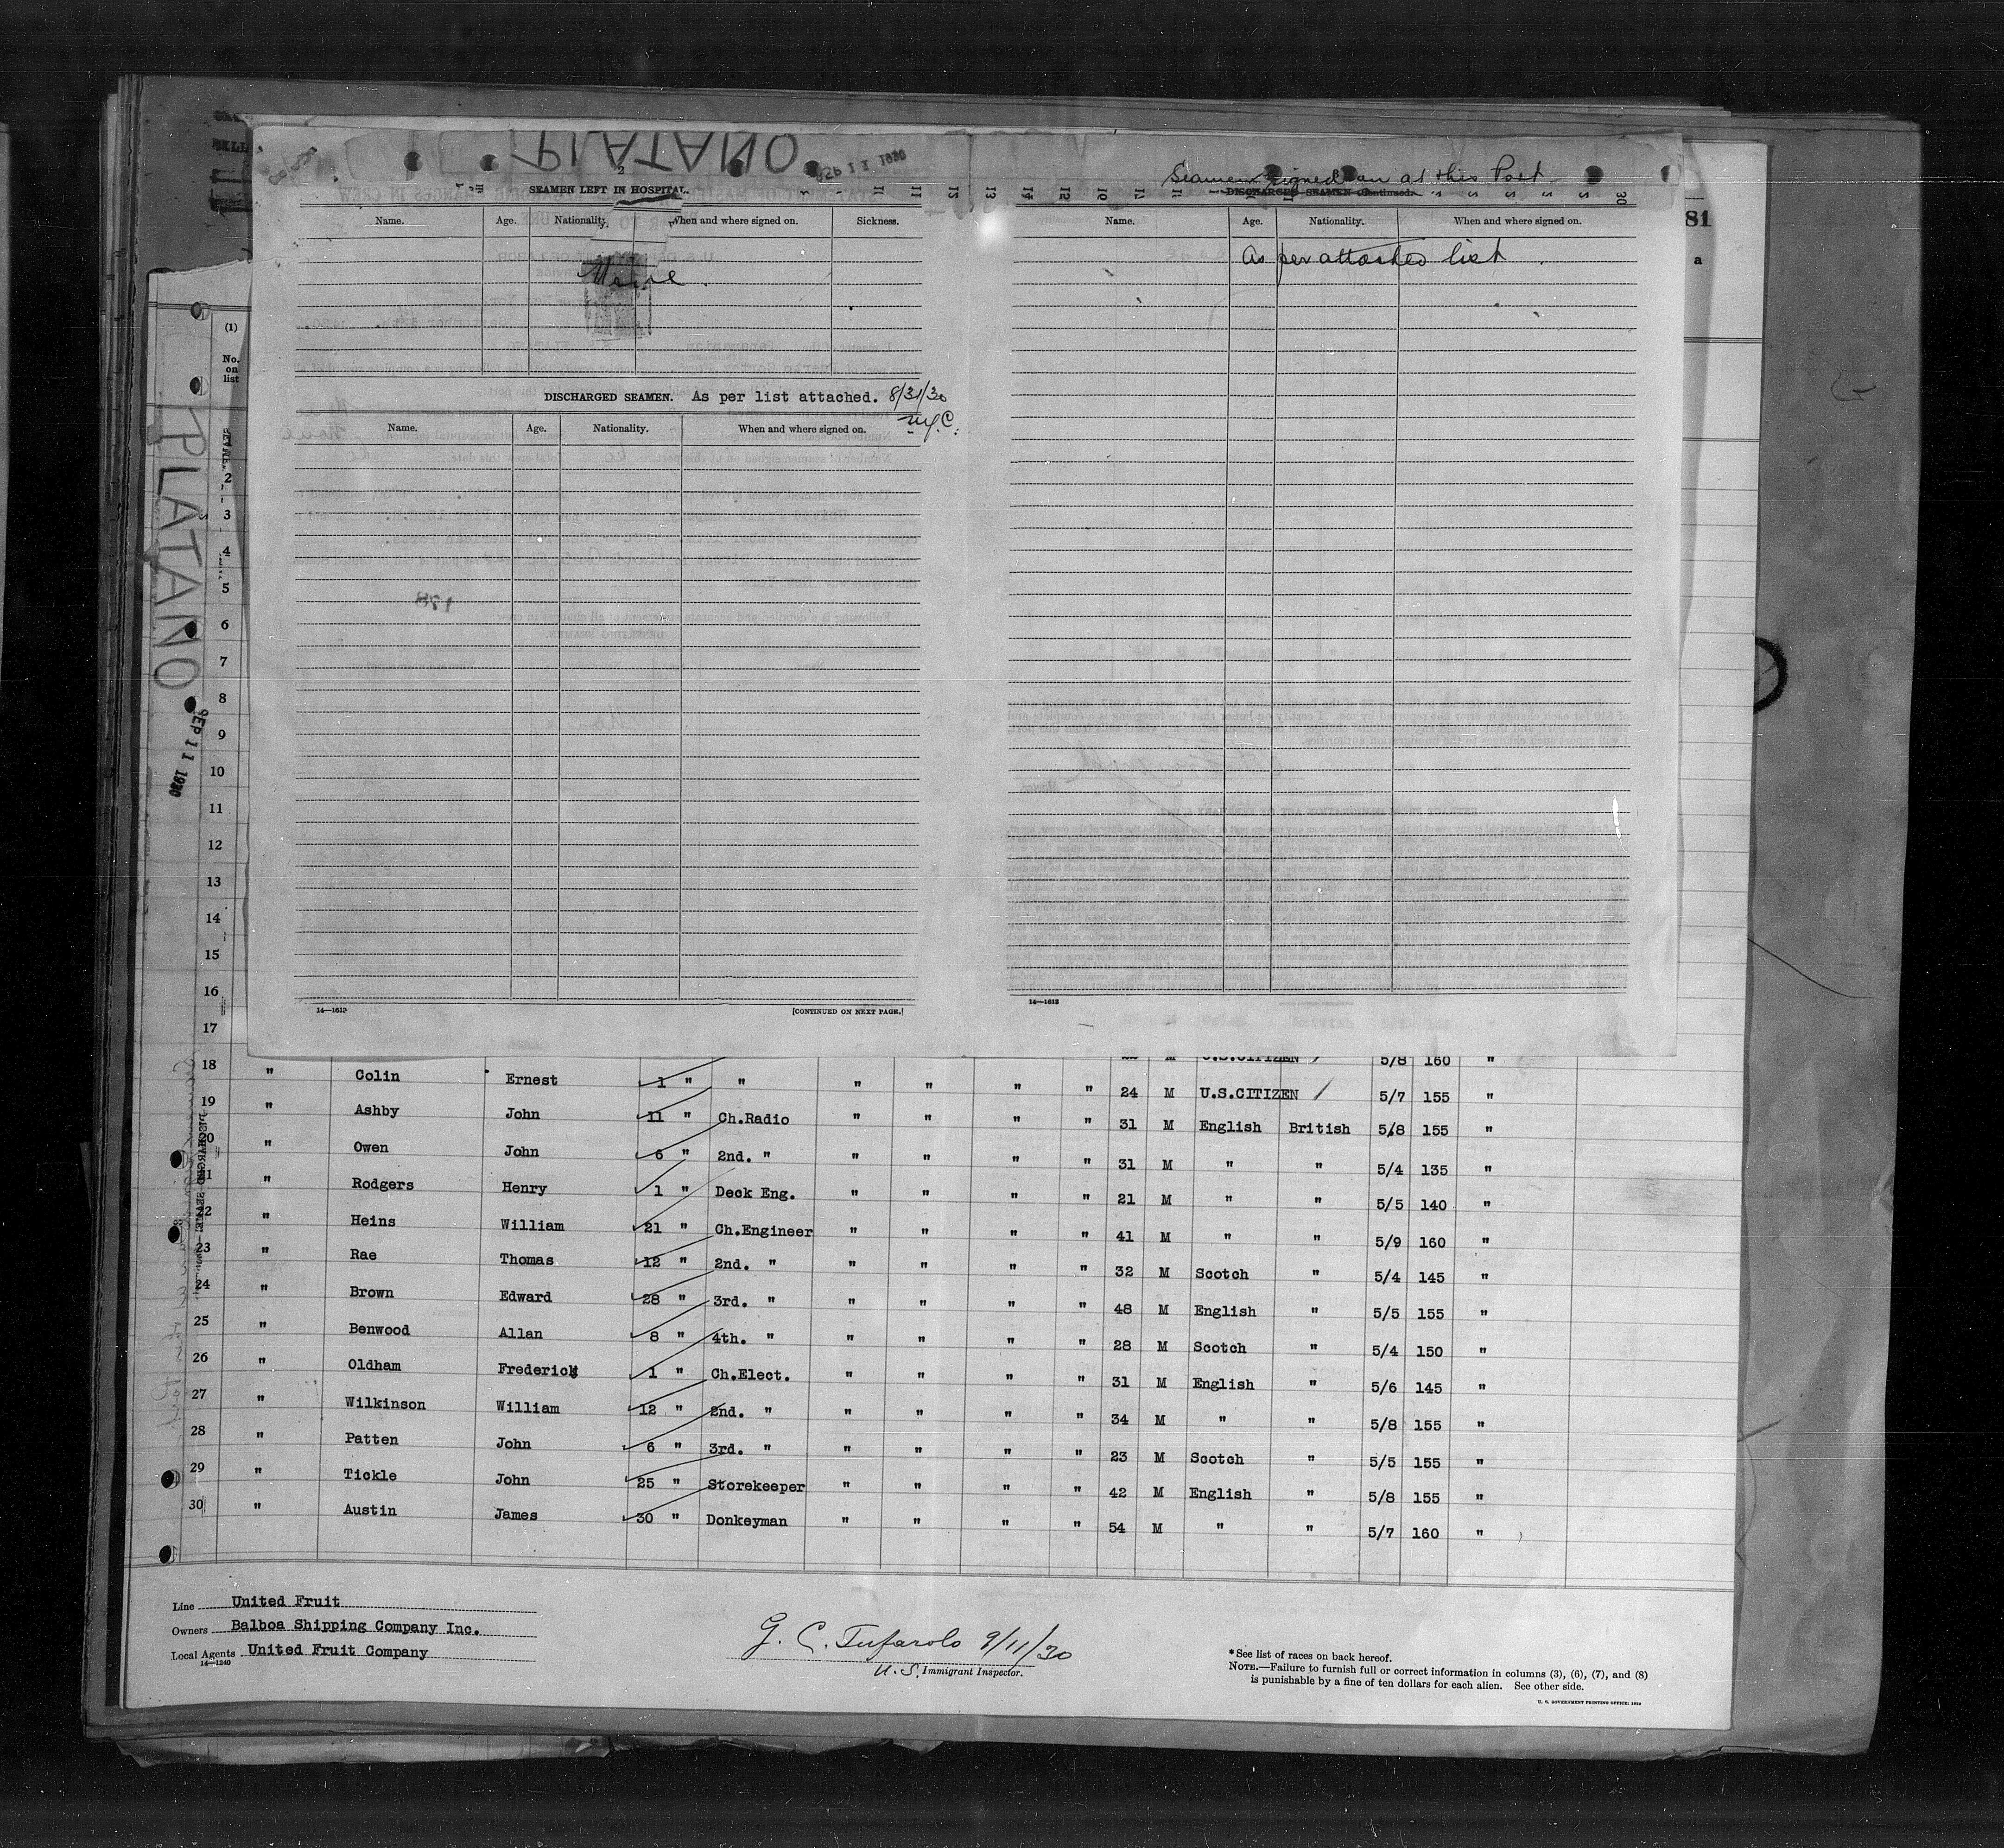 PLATANO
SEP 11 1930
2
SEAMEN LEFT IN HOSPITAL.
Name. Age. Nationality. When and where signed on. Sickness.
None.
DISCHARGED SEAMEN. As per list attached. 8/31/30
N.Y.C.
Name. Age. Nationality. When and where signed on.
14—1612
[CONTINUED ON NEXT PAGE.]
Seamen signed on at this Port
DISCHARGED SEAMEN (Continued).
Name. Age. Nationality. When and where signed on.
As per attached list.
14—1612
81
a
(1)
No. on list
PLATANO
SEP 11 1930
2
3
4
5
6
7
8
9
10
11
12
13
14
15
16
17
18 U.S.CITIZEN 5/8 160 "
19 " Colin Ernest 1 " " " " " " 24 M U.S.CITIZEN 5/7 155 "
20 " Ashby John 11 " Ch.Radio " " " " 31 M English British 5/8 155 "
21 " Owen John 6 " 2nd. " " " " " 31 M " " 5/4 135 "
22 " Rodgers Henry 1 " Deck Eng. " " " " 21 M " " 5/5 140 "
23 " Heins William 21 " Ch.Engineer " " " " 41 M " " 5/9 160 "
24 " Rae Thomas 12 " 2nd. " " " " " 32 M Scotch " 5/4 145 "
25 " Brown Edward 28 " 3rd. " " " " " 48 M English " 5/5 155 "
26 " Benwood Allan 8 " 4th. " " " " " 28 M Scotch " 5/4 150 "
27 " Oldham Frederick 1 " Ch.Elect. " " " " 31 M English " 5/6 145 "
28 " Wilkinson William 12 " 2nd. " " " " " 34 M " " 5/8 155 "
29 " Patten John 6 " 3rd. " " " " " 23 M Scotch " 5/5 155 "
30 " Tickle John 25 " Storekeeper " " " " 42 M English " 5/8 155 "
" Austin James 30 " Donkeyman " " " " 54 M " " 5/7 160 "
Line United Fruit
Owners Balboa Shipping Company Inc.
Local Agents United Fruit Company
14—1240
G. C. Tufarolo 9/11/30
U.S. Immigrant Inspector.
*See list of races on back hereof.
NOTE.—Failure to furnish full or correct information in columns (3), (6), (7), and (8)
is punishable by a fine of ten dollars for each alien. See other side.
U. S. GOVERNMENT PRINTING OFFICE: 1929